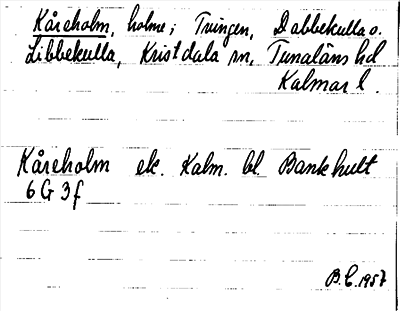 Kåreholm, holme i Tvingen, Dabbekulla o.
Libbekulla, Kristdala sn, Tunaläns hd
Kalmar l.
Kåreholm ek. Kalm. bl. Bankhult
6 G 3f
B.C. 1957